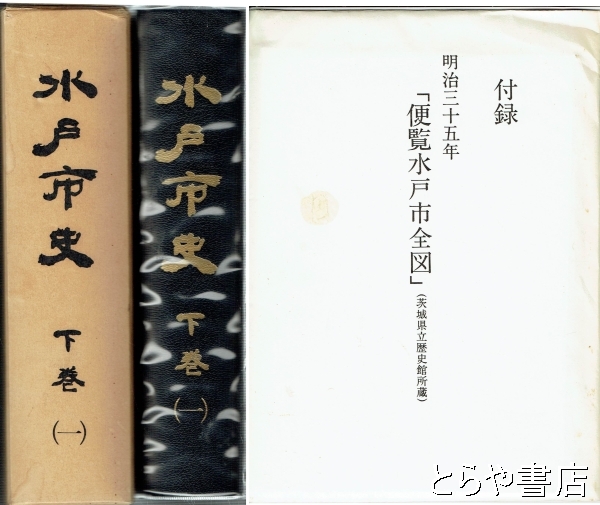 水戸市史
下巻
(一)
水戸市史
下巻
(一)
付録
明治三十五年
「便覧水戸市全図」(茨城県立歴史館所蔵)
とらや書店